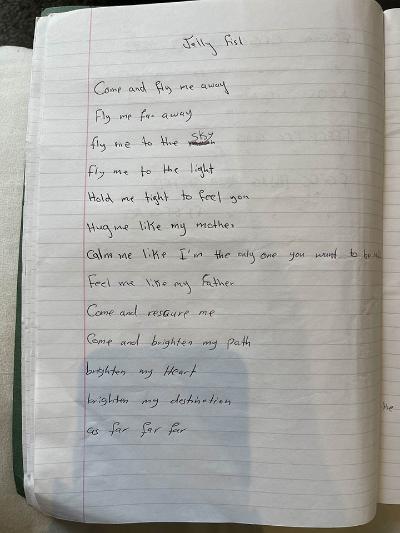 Jelly fish
Come and fly me away
Fly me far away
fly me to the sky
fly me to the light
Hold me tight to feel you
Hug me like my mother
Calm me like I'm the only one you want to be
Feel me like my father
Come and rescure me
Come and brighten my path
brighten my Heart
brighten my destination
as far far far